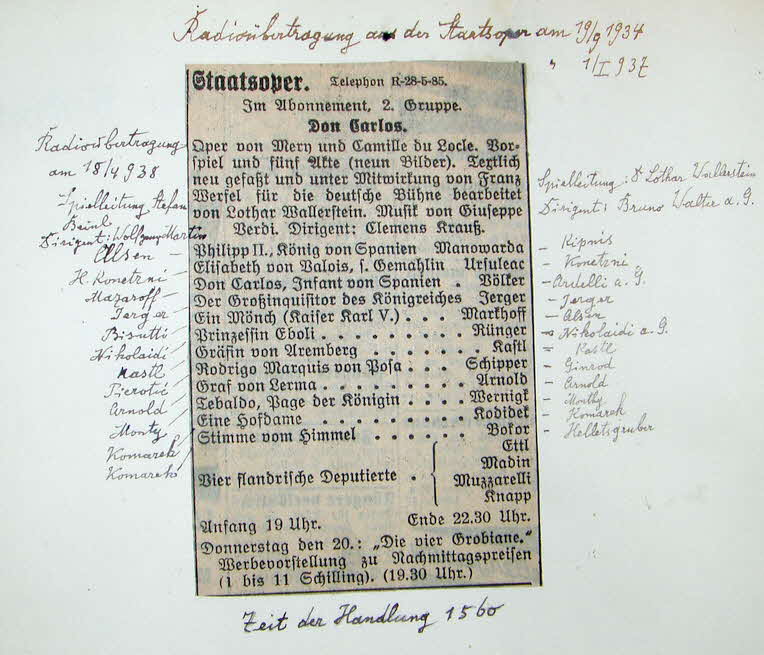 Radioübertragung aus der Staatsoper am 19/9 1934
" 1/I 937
Staatsoper. Telephon R-28-5-85.
Im Abonnement, 2. Gruppe.
Don Carlos.
Oper von Mery und Camille du Locle. Vor-
spiel und fünf Akte (neun Bilder). Textlich
neu gefaßt und unter Mitwirkung von Franz
Werfel für die deutsche Bühne bearbeitet
von Lothar Wallerstein. Musik von Giuseppe
Verdi. Dirigent: Clemens Krauß.
Philipp II., König von Spanien Manowarda
Elisabeth von Valois, s. Gemahlin Ursuleac
Don Carlos, Infant von Spanien . Völker
Der Großinquisitor des Königreiches Jerger
Ein Mönch (Kaiser Karl V.) . . . Markhoff
Prinzessin Eboli . . . . . . Rünger
Gräfin von Aremberg . . . . . . Kastl
Rodrigo Marquis von Posa . . . Schipper
Graf von Lerma . . . . . . . Arnold
Tebaldo, Page der Königin . . . Wernigk
Eine Hofdame . . . . . . . Kodidek
Stimme vom Himmel . . . . . Bokor
Vier flandrische Deputierte . { Ettl
Madin
Muzzarelli
Knapp
Anfang 19 Uhr. Ende 22.30 Uhr.
Donnerstag den 20.: „Die vier Grobiane.“
Werbevorstellung zu Nachmittagspreisen
(1 bis 11 Schilling). (19.30 Uhr.)
Radioübertragung
am 18/4 938
Spielleitung Stefan
Beinl
Dirigent: Wolfgang Martin
Alsen –
H. Konetzni –
Mazaroff –
Jerger –
Bisutti
Nikolaidi
Kastl
Pierotić
Arnold
Monty
Komarek
Komarek
Spielleitung: D Lothar Wallerstein
Dirigent: Bruno Walter a. G.
– Kipnis
– Konetzni
– Ardelli a. G.
– Jerger
– Alsen
– Nikolaidi a. G.
– Kastl
– Ginrod
– Arnold
– Monty
– Komarek
– Helletsgruber
Zeit der Handlung 1560